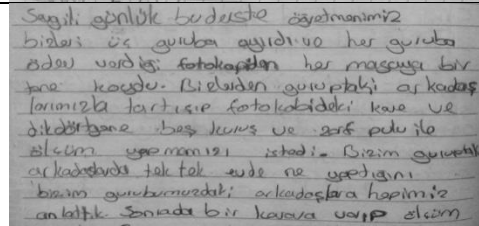 Sayıli günlük bu derste öğretmenimiz
bizleri üç guruba ayırdı. ve her guruba
ödev verdiği fotokopiden her masaya bir
tane koydu. Bizlerden guruptaki arkadaş
larımızla tartışıp fotokobideki kare ve
dikdörtgene beş kuruş ve zarf pulu ile
ölçüm yapmamızı istedi. Bizim guruptaki
arkadaşlarda tek tek evde ne yaptığını
bizim gurubumuzdaki arkadaşlara hepimiz
anlattık. Sonrada bir karara varıp ölçüm